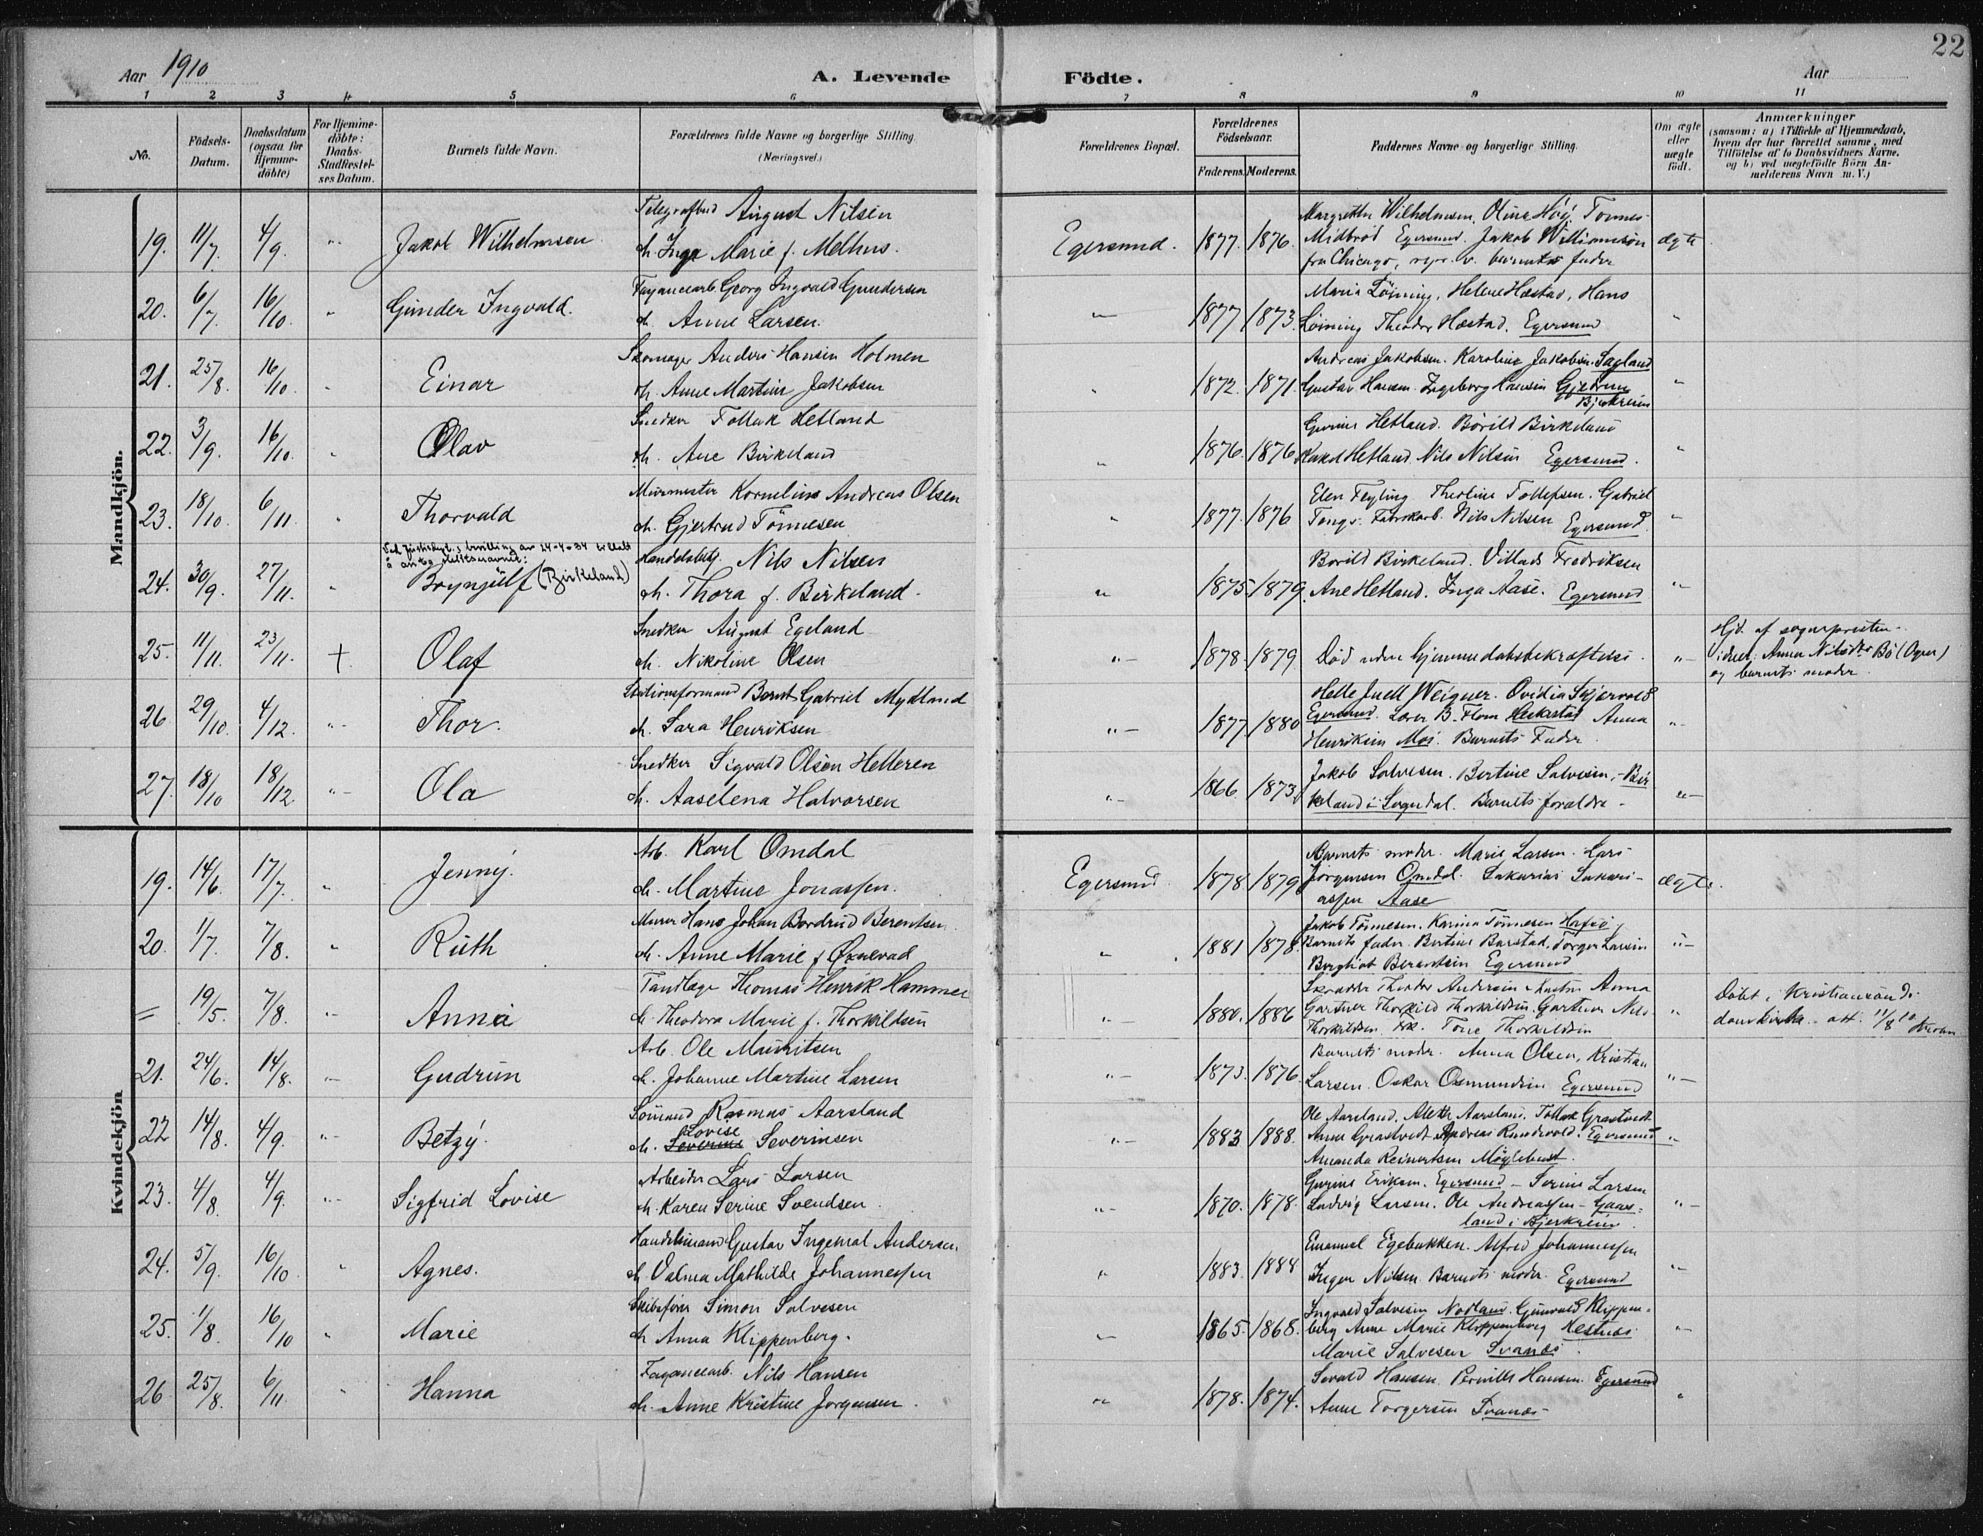 22
Aar 1910
A. Levende Fødte.
Aar
1 2 3 4 5 6 7 8 9 10 11
No.
Födsels-Datum.
Daabsdatum (ogsaa for Hjemme-döbte)
For Hjemme-döbte: Daabs-Stadfæstel-ses Datum.
Barnets fulde Navn.
Forældrenes fulde Navne og borgerlige Stilling. (Næringsvei.)
Forældrenes Bopæl.
Forældrenes Födselsaar. Faderens. Moderens.
Faddernes Navne og borgerlige Stilling.
Om ægte eller uægte födt.
Anmærkninger (saasom: a) i Tilfælde af Hjemmedaab, hvem der har forrettet samme, med Tilföielse af to Daabsvidners Navne, og b) ved uægtefödte Börn An-melderens Navn m. V.)
Mandkjön.
19. 11/7. 4/9. Jakob Wilhelmsen. Telegrafbud August Nilsen
h. Inga Marie f. Melhus. Egersund. 1877. 1876. ægte
Margrethe Wilhelmsen. Olina Höy. Tönnes
Midbröd Egersund. Jakob Williamson
fra Chicago, repr. v. barnets fader
20. 6/7. 16/10. Gunder Ingvald. Fayancearb Georg Ingvald Gundersen
h. Anne Larsen. 1877 1873.
Maria Löining, Helene Hæstad, Hans
Löining Theodor Hæstad. Egersund
21. 25/8. 16/10. Einar Skomager Anders Hansen Holmen
h. Anne Martine Jakobsen 1872. 1871.
Andreas Jakobsen. Karoline Jakobsen. Sagland
Gustav Hansen. Ingeborg Hansen Gjedrem
Bjerkreim
22. 3/9. 16/10. Olav Snedker Tollak Hetland
h. Ane Birkeland 1876. 1876
Gurine Hetland. Böril Birkeland
Hetland. Nils Nilsen Egersund.
23. 18/10. 6/11. Thorvald Murmester Kornelius Andreas Olsen
h. Gjertrud Tönnesen 1877. 1876
Elen Feyling. Theoline Tollefsen. Gabriel
Tengs. Fabrikarb. Nils Nilsen Egersund.
av 24-4-34
24. 30/9. 27/11. Brynjulf (Birkeland) Handelsbetj. Nils Nilsen
h. Thora f. Birkeland. 1875 1879.
Borild Birkeland. Villads Fredriksen
Ane Hetland. Inga Aase. Egersund
25. 11/11. 23/11. + Olaf Snedker August Egeland
h. Nikoline Olsen 1878. 1879
Död uden Hjemmedaabsbekræftelse.
Hjd. af sognepresten.
Vidner: Anna Bö (Ogna)
og barnets moder.
26 29/10. 4/12. Thor. Stationsformand Bernt Gabriel Mykland
h. Sara Henriksen 1877. 1880
Helle Juell Weigner. Ovidia Skjervold
Egersund. B. Flom Heskestad Anna
Henriksen Moi. Barnets Fader.
27. 18/10 18/12. Ola Snedker Sigvald Olsen Helleren
h. Aaselena Halvorsen 1866. 1873.
Jakob Salvesen. Bertine Salvesen, Bir-
keland i Sogndal. Barnets foraldre
Kvindekjön
19. 14/6. 17/7. Jenny. Arb. Karl Omdal
h. Martine Jonassen. Egersund. 1878. 1879. ægte.
Barnets moder. Marie Larsen. Lars
Jörgensen Omdal. Sakarias Sakari-
assen Aase
20. 1/7. 7/8. Ruth Murer Hans Johan Bernhard Berentsen
h. Anne Marie f Öxnevad 1881 1878.
Jakob Tönnesen. Karina Tönnesen
Barnets fader. Bertine Barstad. Torger Larsen
Bergliot Berentsen Egersund
= 19/5. 7/8. Anna Tandlæge Thomas Henrik Hammer
h. Theodora Marie f. Thorkildsen 1880. 1886
Theodor Andersen Anna
Gartner Thorkild Thorkildsen. Gartner Nils
Thorkildsen. frk. Tone Thorkildsen
Döbt i Kristiansands
domkirke att. 11/8 10
21. 24/6. 14/8. Gudrun Arb. Ole Mauritsen
h. Johanne Martine Larsen 1873. 1876.
Barnets moder. Anna Olsen, Kristian
Larsen. Oskar Osmundsen Egersund
22 14/8. 4/9. Betzy. Sömand Rasmus Aarsland
Lovise
h. Severine Severinsen 1883 1888.
Ole Aarsland. Alette Aarsland. Tollak Grastvedt
Anne Grastvedt. Andreas Rundevold. Egersund
Amanda Reinertsen Möglebust.
23. 4/8. 4/9. Sigfrid Lovise Arbeider Lars Larsen
h. Karen Serine Svendsen 1870. 1878.
Gurine Eriksen. Egersund. Serine Larsen
Ludvig Larsen. Ole Andreassen Gaas-
land i Bjerkreim.
24. 5/9. 16/10. Agnes. Handelsmand Gustav Ingemal Andersen
h. Valma Mathilde Johannessen 1883. 1884
Emanuel Egebakken. Alfred Johannessen
Inger Nilsen Barnets moder. Egersund
25. 1/8. 16/10 Marie Skibsfører Simon Salvesen
h. Anna Klippenberg. 1865. 1868.
Ingvald Salvesen Nodland. Gunvald Klippen-
berg Anne Marie Klippenberg Hestnes
Marie Salvesen Svanes.
26 25/8. 6/11. Hanna Fayancearb. Nils Hansen
h. Anne Kristine Jorgensen. 1878. 1874.
Sevald Hansen. Pernille Hansen. Egersund
Anne Torgersen Svanes